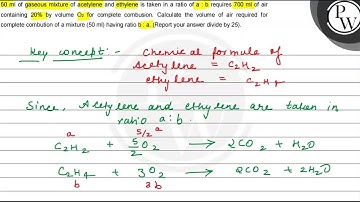 50 ml of gaseous mixture of acetylene and ethylene is taken in a ratio of a : b requires 700 ml of air
containing 20% by volume O₂ for complete combustion. Calculate the volume of air required for
complete combution of a mixture (50 ml) having ratio b : a. (Report your answer divide by 25).
PW
Key concept:- Chemical formula of
acetylene = C₂H₂
ethylene = C₂H₄
Since, Acetylene and ethylene are taken in
ratio a:b.
a 5/2 a
C₂H₂ + 5/2 O₂ → 2CO₂ + H₂O
C₂H₄ + 3O₂ → 2CO₂ + 2H₂O
b 3b